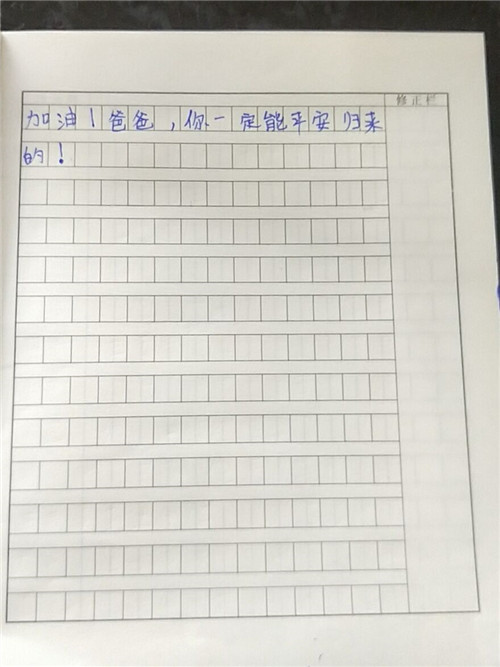 修正栏
加油！爸爸，你一定能平安归来
的！